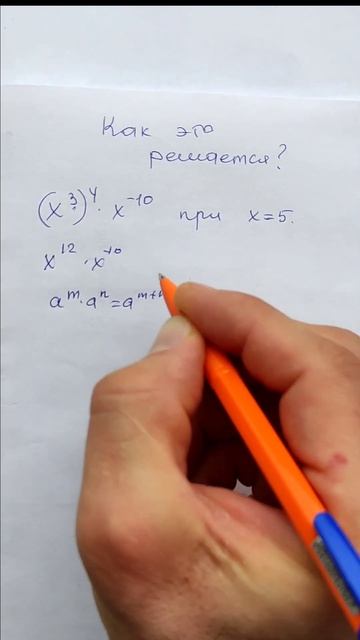 Как это
решается?
(x³)⁴ · x⁻¹⁰ при x=5.
x¹² · x⁻¹⁰
aᵐ · aⁿ = aᵐ⁺